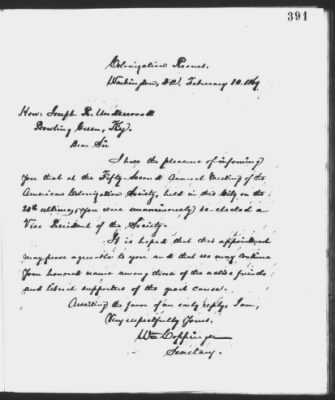 391
Colonization Rooms.
Washington, D.C. February 10. 1869
Hon: Joseph R. Underwood
Bowling Green, Ky.
Dear Sir
I have the pleasure of informing
you that at the Fifty-Second Annual Meeting of the
American Colonization Society, held in this City on the
ultimo, you were unanimously re-elected a
Vice President of the Society.
It is hoped that this appointment
may prove agreeable to you and that we may continue
Your honored name among those of the active friends
and liberal supporters of the great cause.
Awaiting the favor of an early reply, I am,
Very respectfully Yours,
Wm Coppinger
Secretary.